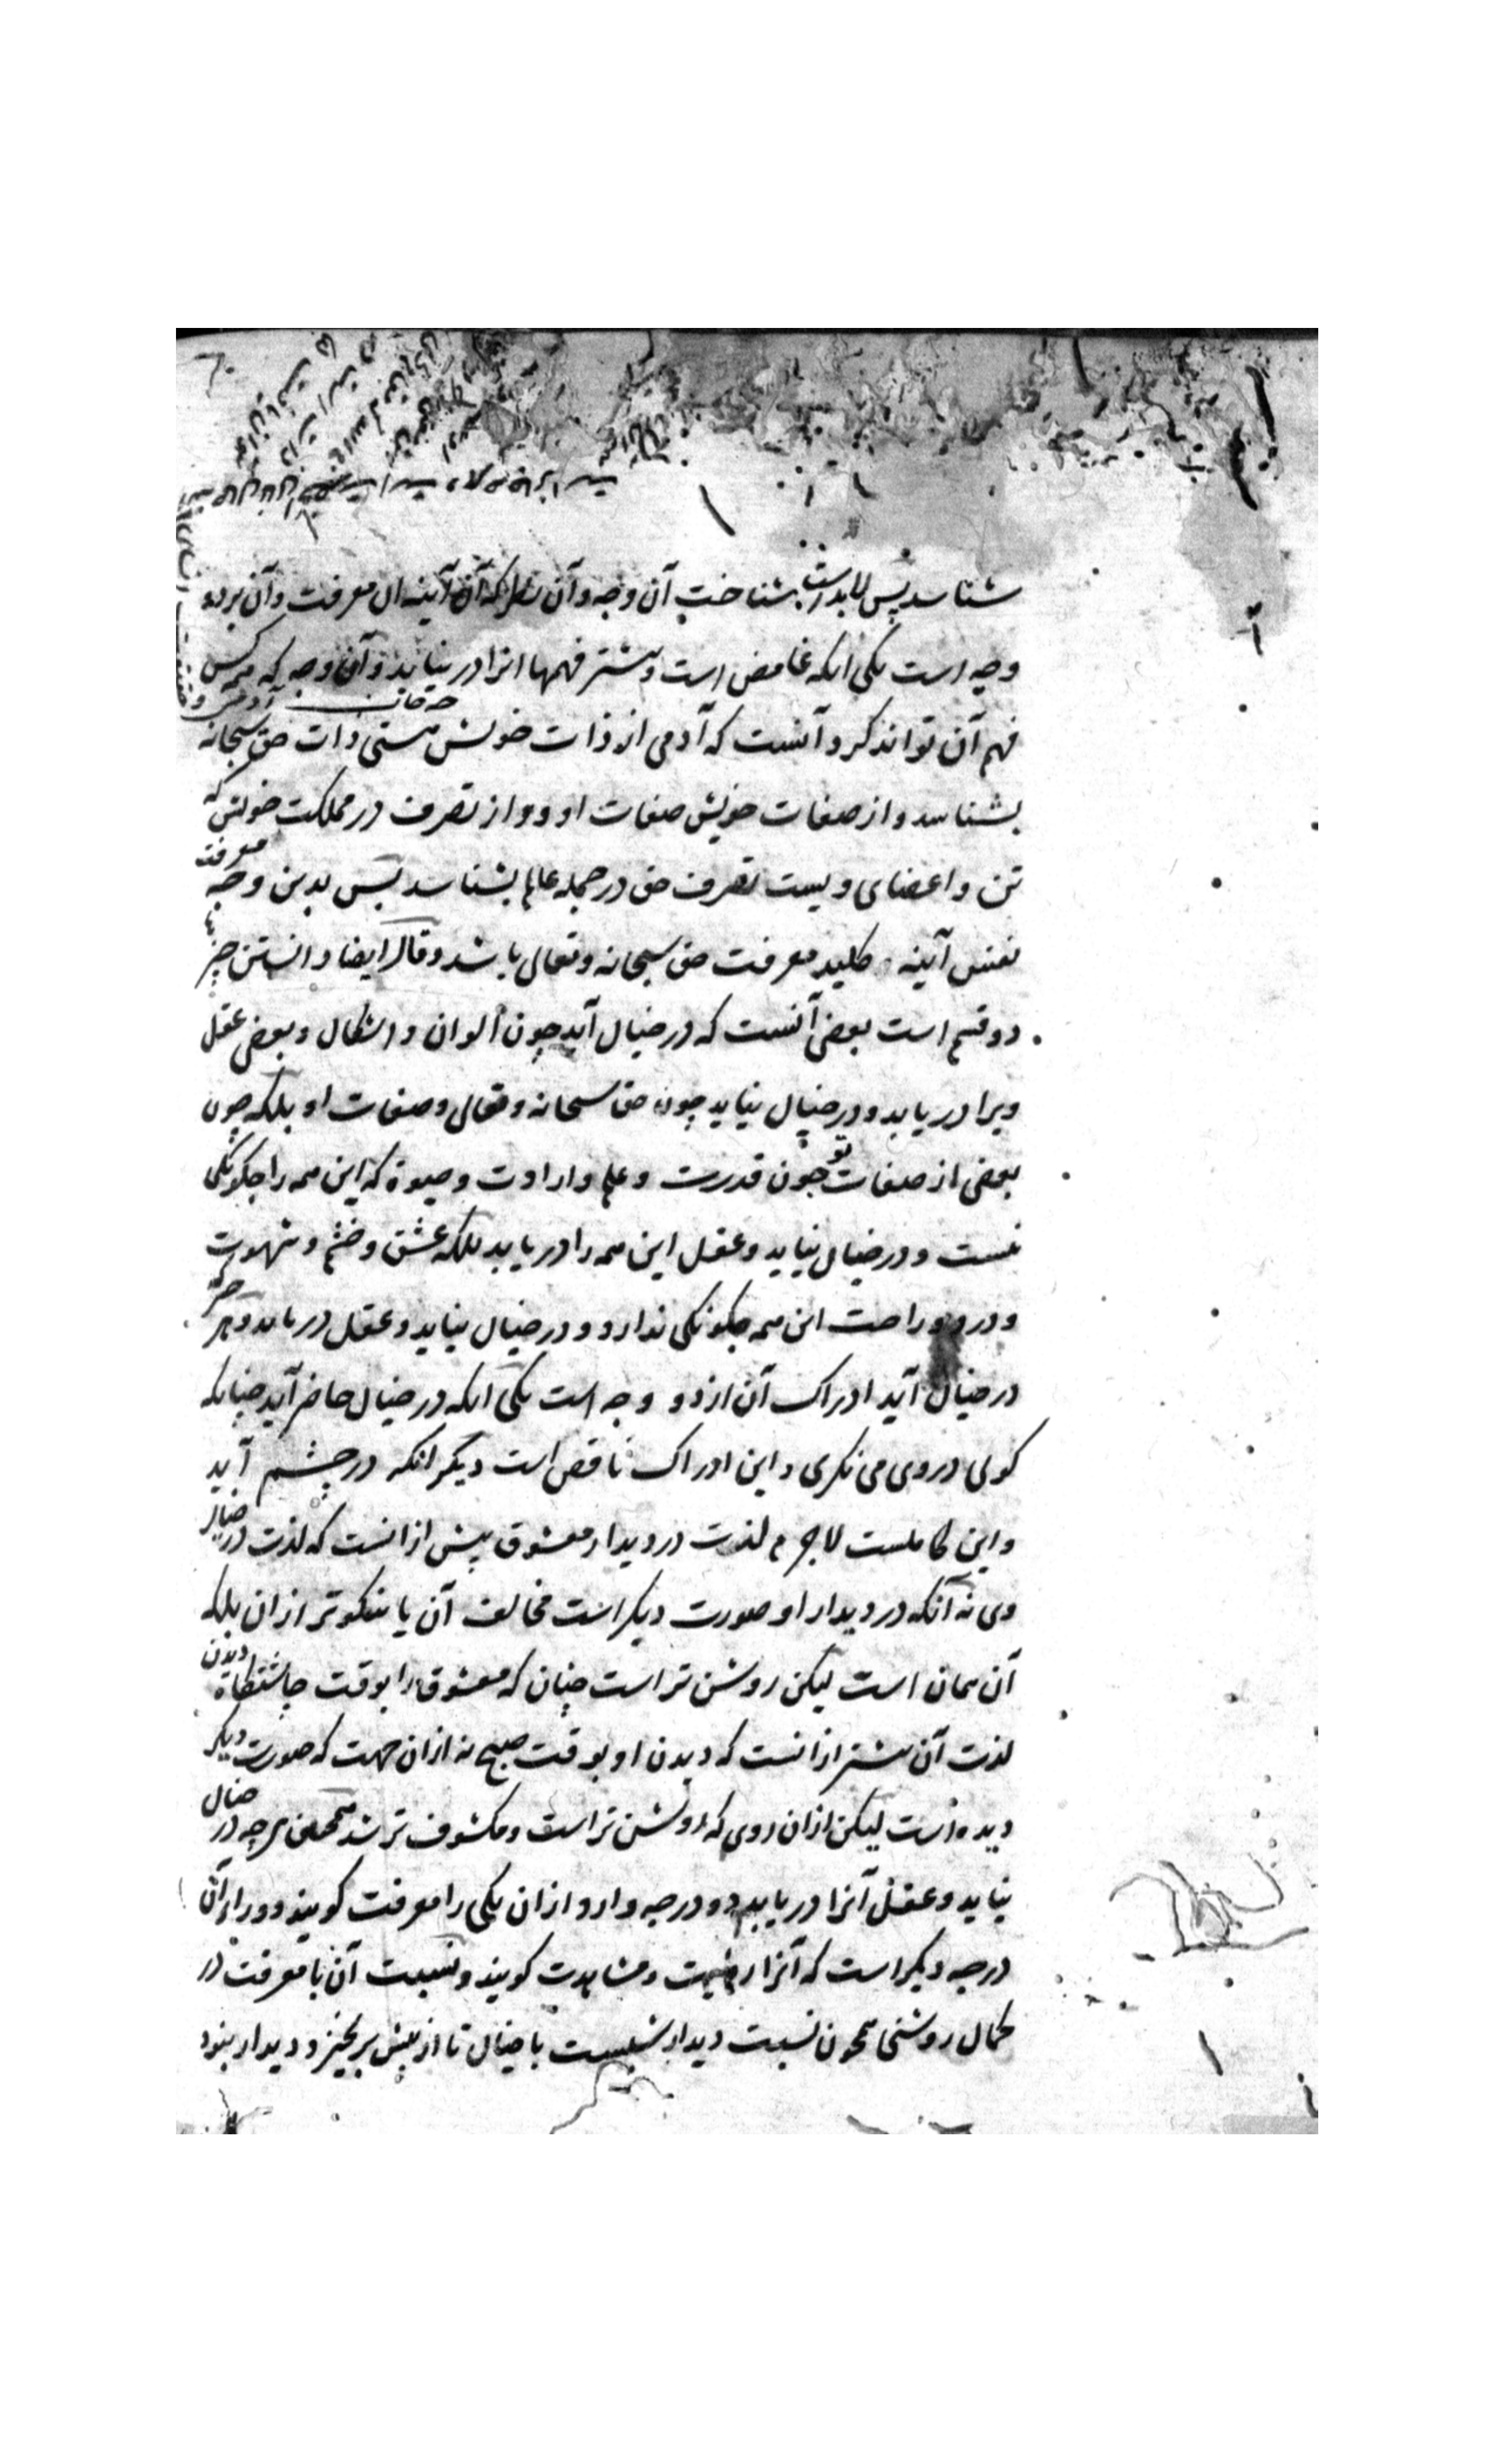 شناسد پس لابد است بشناخت آن وجه و آن نظر که آن آینه آن معرفت و آن بر دو
وجه است یکی آنکه غامض است و بیشتر فهمها آنرا در نیابد و آن وجه که همه کس
فهم آن تواند کرد آنست که آدمی از ذات خویش هستی ذات حق سبحانه
بشناسد و از صفات خویش صفات او و از تصرف در مملکت خویش که
تن و اعضای ویست تصرف حق در جمله عالم بشناسد پس بدین وجه معرفت
نفس آینه و کلید معرفت حق سبحانه و تعالی باشد و قال ایضا دانستن چیزها
دو قسم است بعضی آنست که در خیال آید چون الوان و اشکال و بعضی عقل
ویرا دریابد و در خیال نیاید چون حق سبحانه و تعالی و صفات او بلکه چون
بعضی از صفات تو چون قدرت و علم و ارادت و حیوة که این همه را چکونکی
نیست و در خیال نیاید و عقل این همه را دریابد بلکه عشق و خشم و شهوت
و درد و راحت این همه چکونکی ندارد و در خیال نیاید و عقل دریابد و هر چه
در خیال آید ادراک آن از دو وجه است یکی آنکه در خیال حاضر آید چنانکه
کوئی در وی می نکری و این ادراک ناقص است دیکر آنکه در چشم آید
و این کاملست لاجرم لذت در دیدار معشوق بیش از آنست که لذت در خیال
وی نه آنکه در دیدار او صورت دیکر است مخالف آن یا نیکوتر از آن بلکه
آن همان است لیکن روشن تر است چنان که معشوق را بوقت چاشتکاه دیدن
لذت آن بیشتر از آنست که دیدن او بوقت صبح نه از آن جهت که صورت دیکر
دیده است لیکن از آن روی که روشن تر است و مکشوف تر شد همچنین هر چه در خیال
نیاید و عقل آنرا دریابد دو درجه دارد از آن یکی را معرفت کویند و ورای آن
درجه دیکر است که آنرا رؤیت و مشاهدت کویند و نسبت آن با معرفت در
کمال روشنی همچون نسبت دیدار است با خیال تا از پیش برنخیزد دیدار نبود